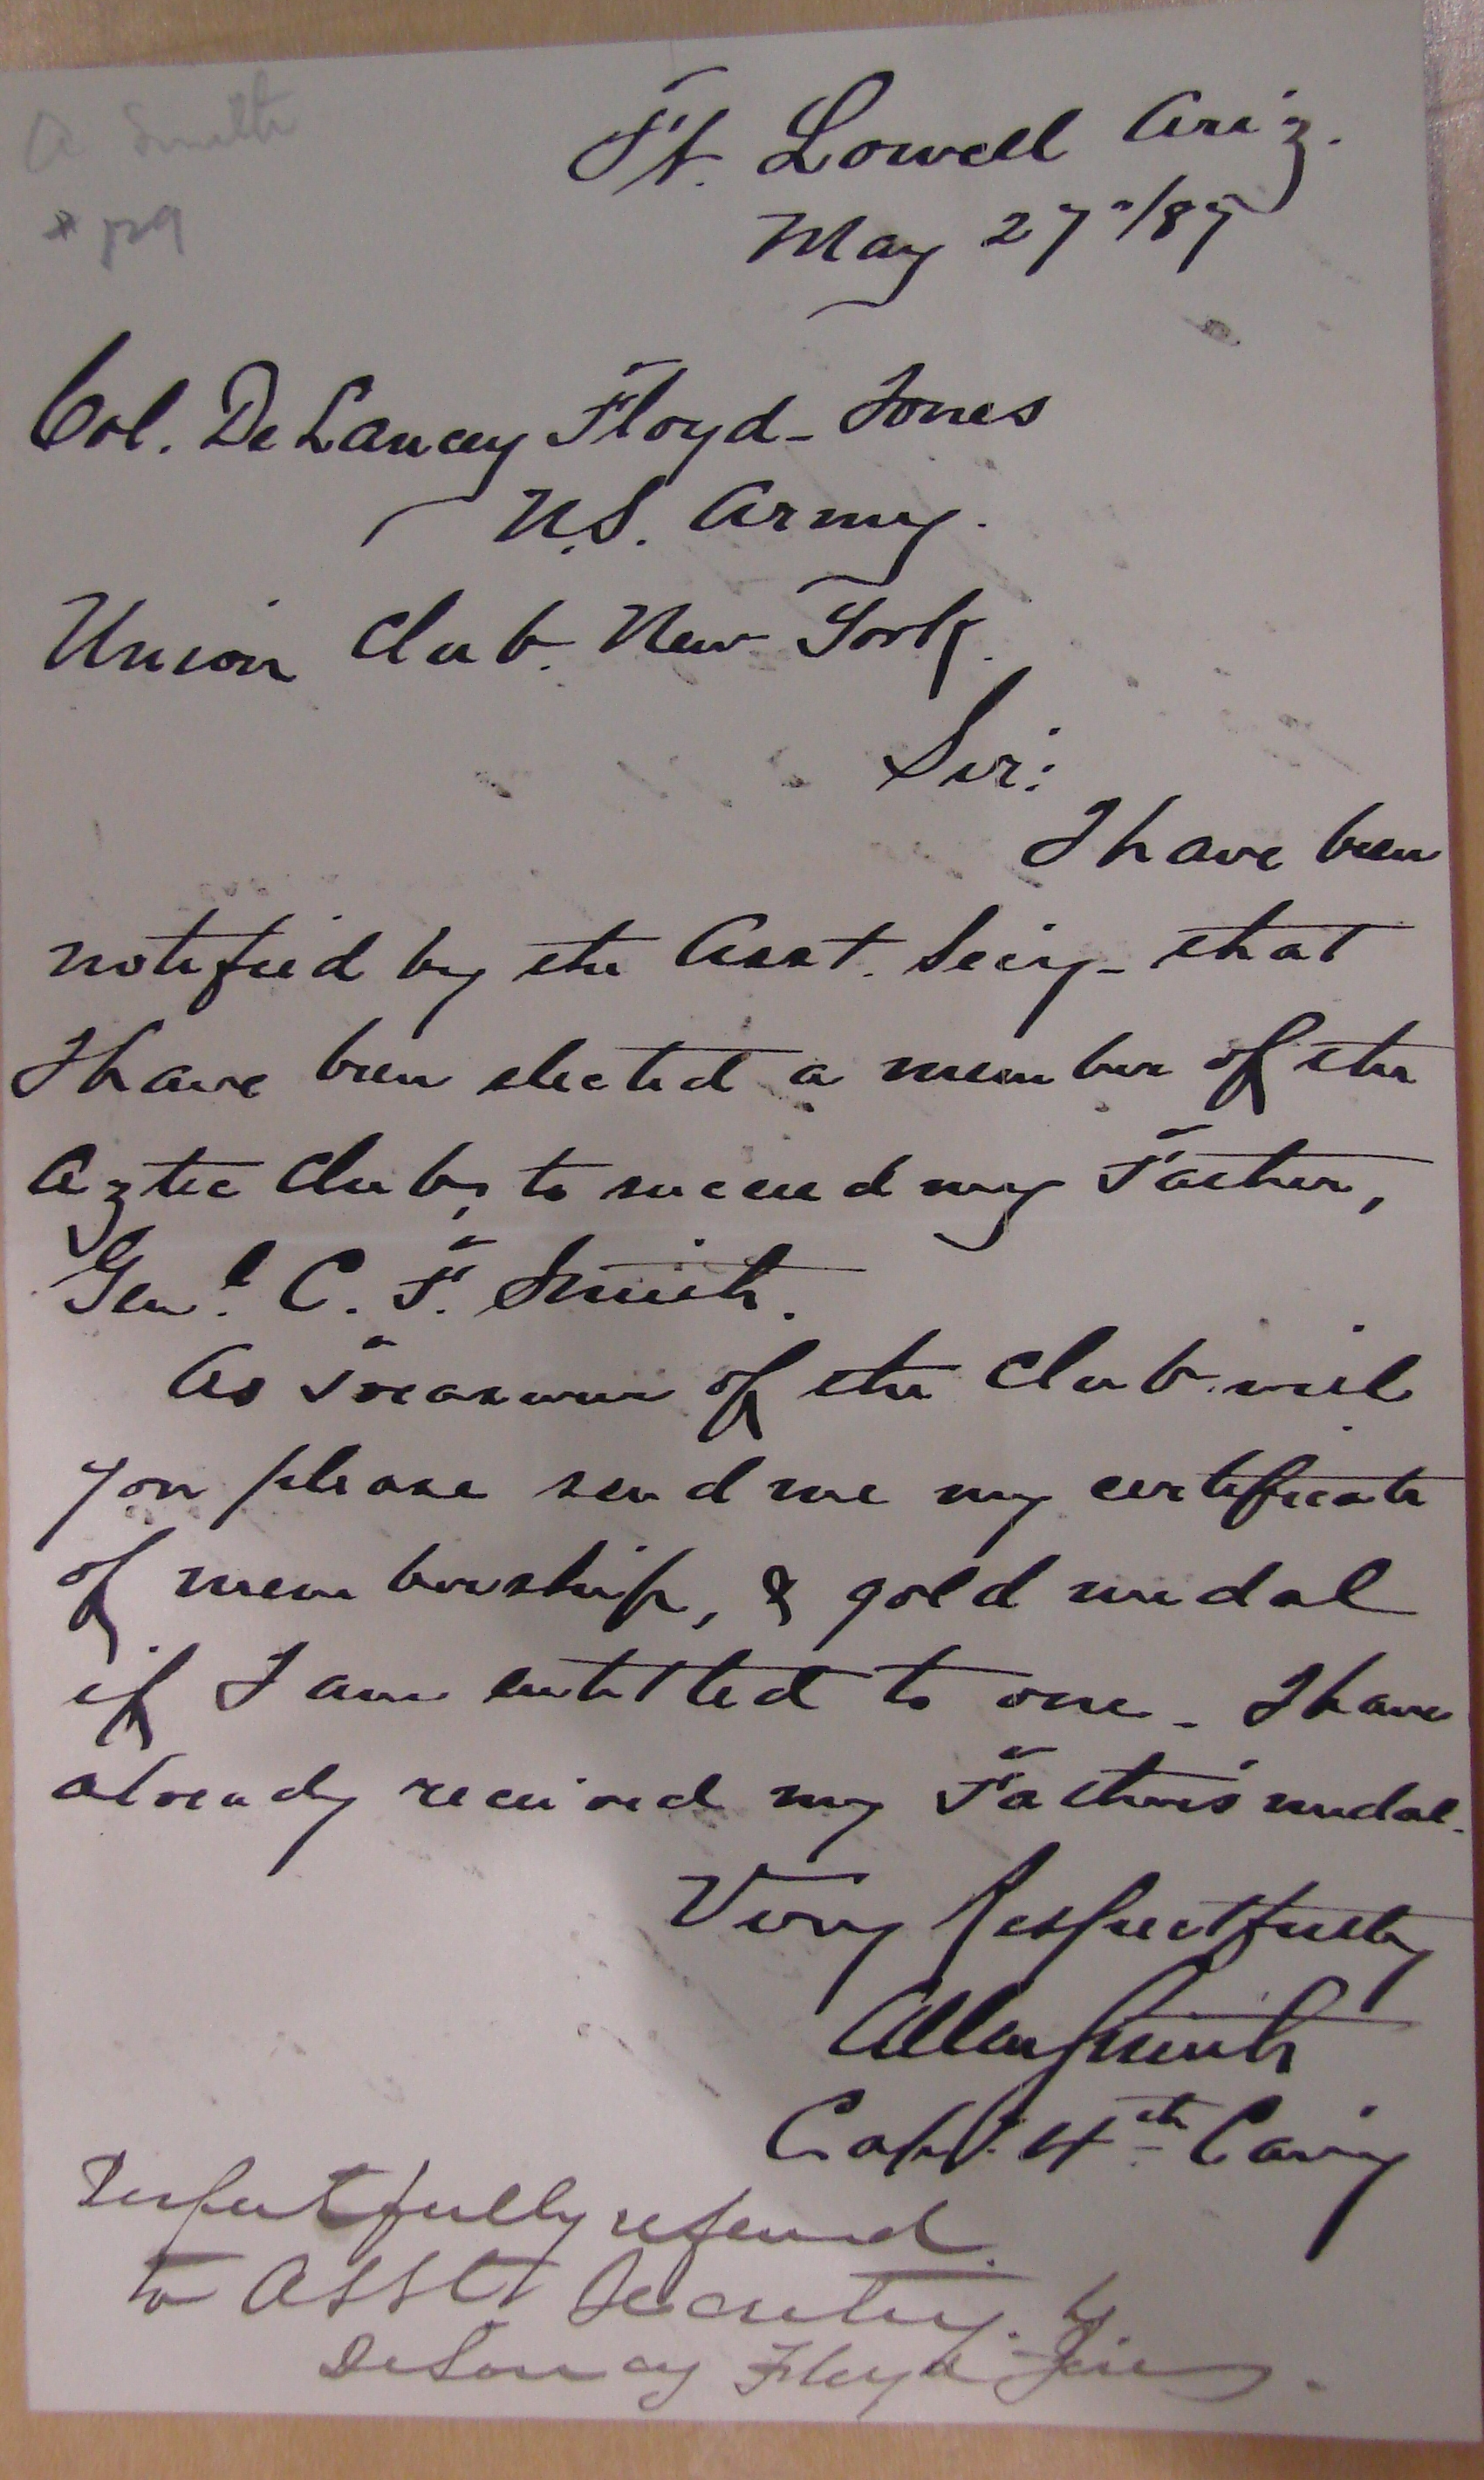 A Smith
Ft. Lowell Ariz.
May 27"/87
Col. De Lancey Floyd-Jones
U.S. Army.
Union Club. New York.
Sir:
I have been
notified by the Asst. Secy- that
I have been elected a member of the
Aztec Club, to succeed my Father,
Genl. C. F. Smith.
As Treasurer of the Club will
you please send me my certificate
of membership, & gold medal
if I am entitled to one - I have
already received my Father's medal.
Very Respectfully
Allen Smith
Capt. 4th Cavy
Respectfully referred
to Asst Secretary. by
DeLancey Floyd-Jones.